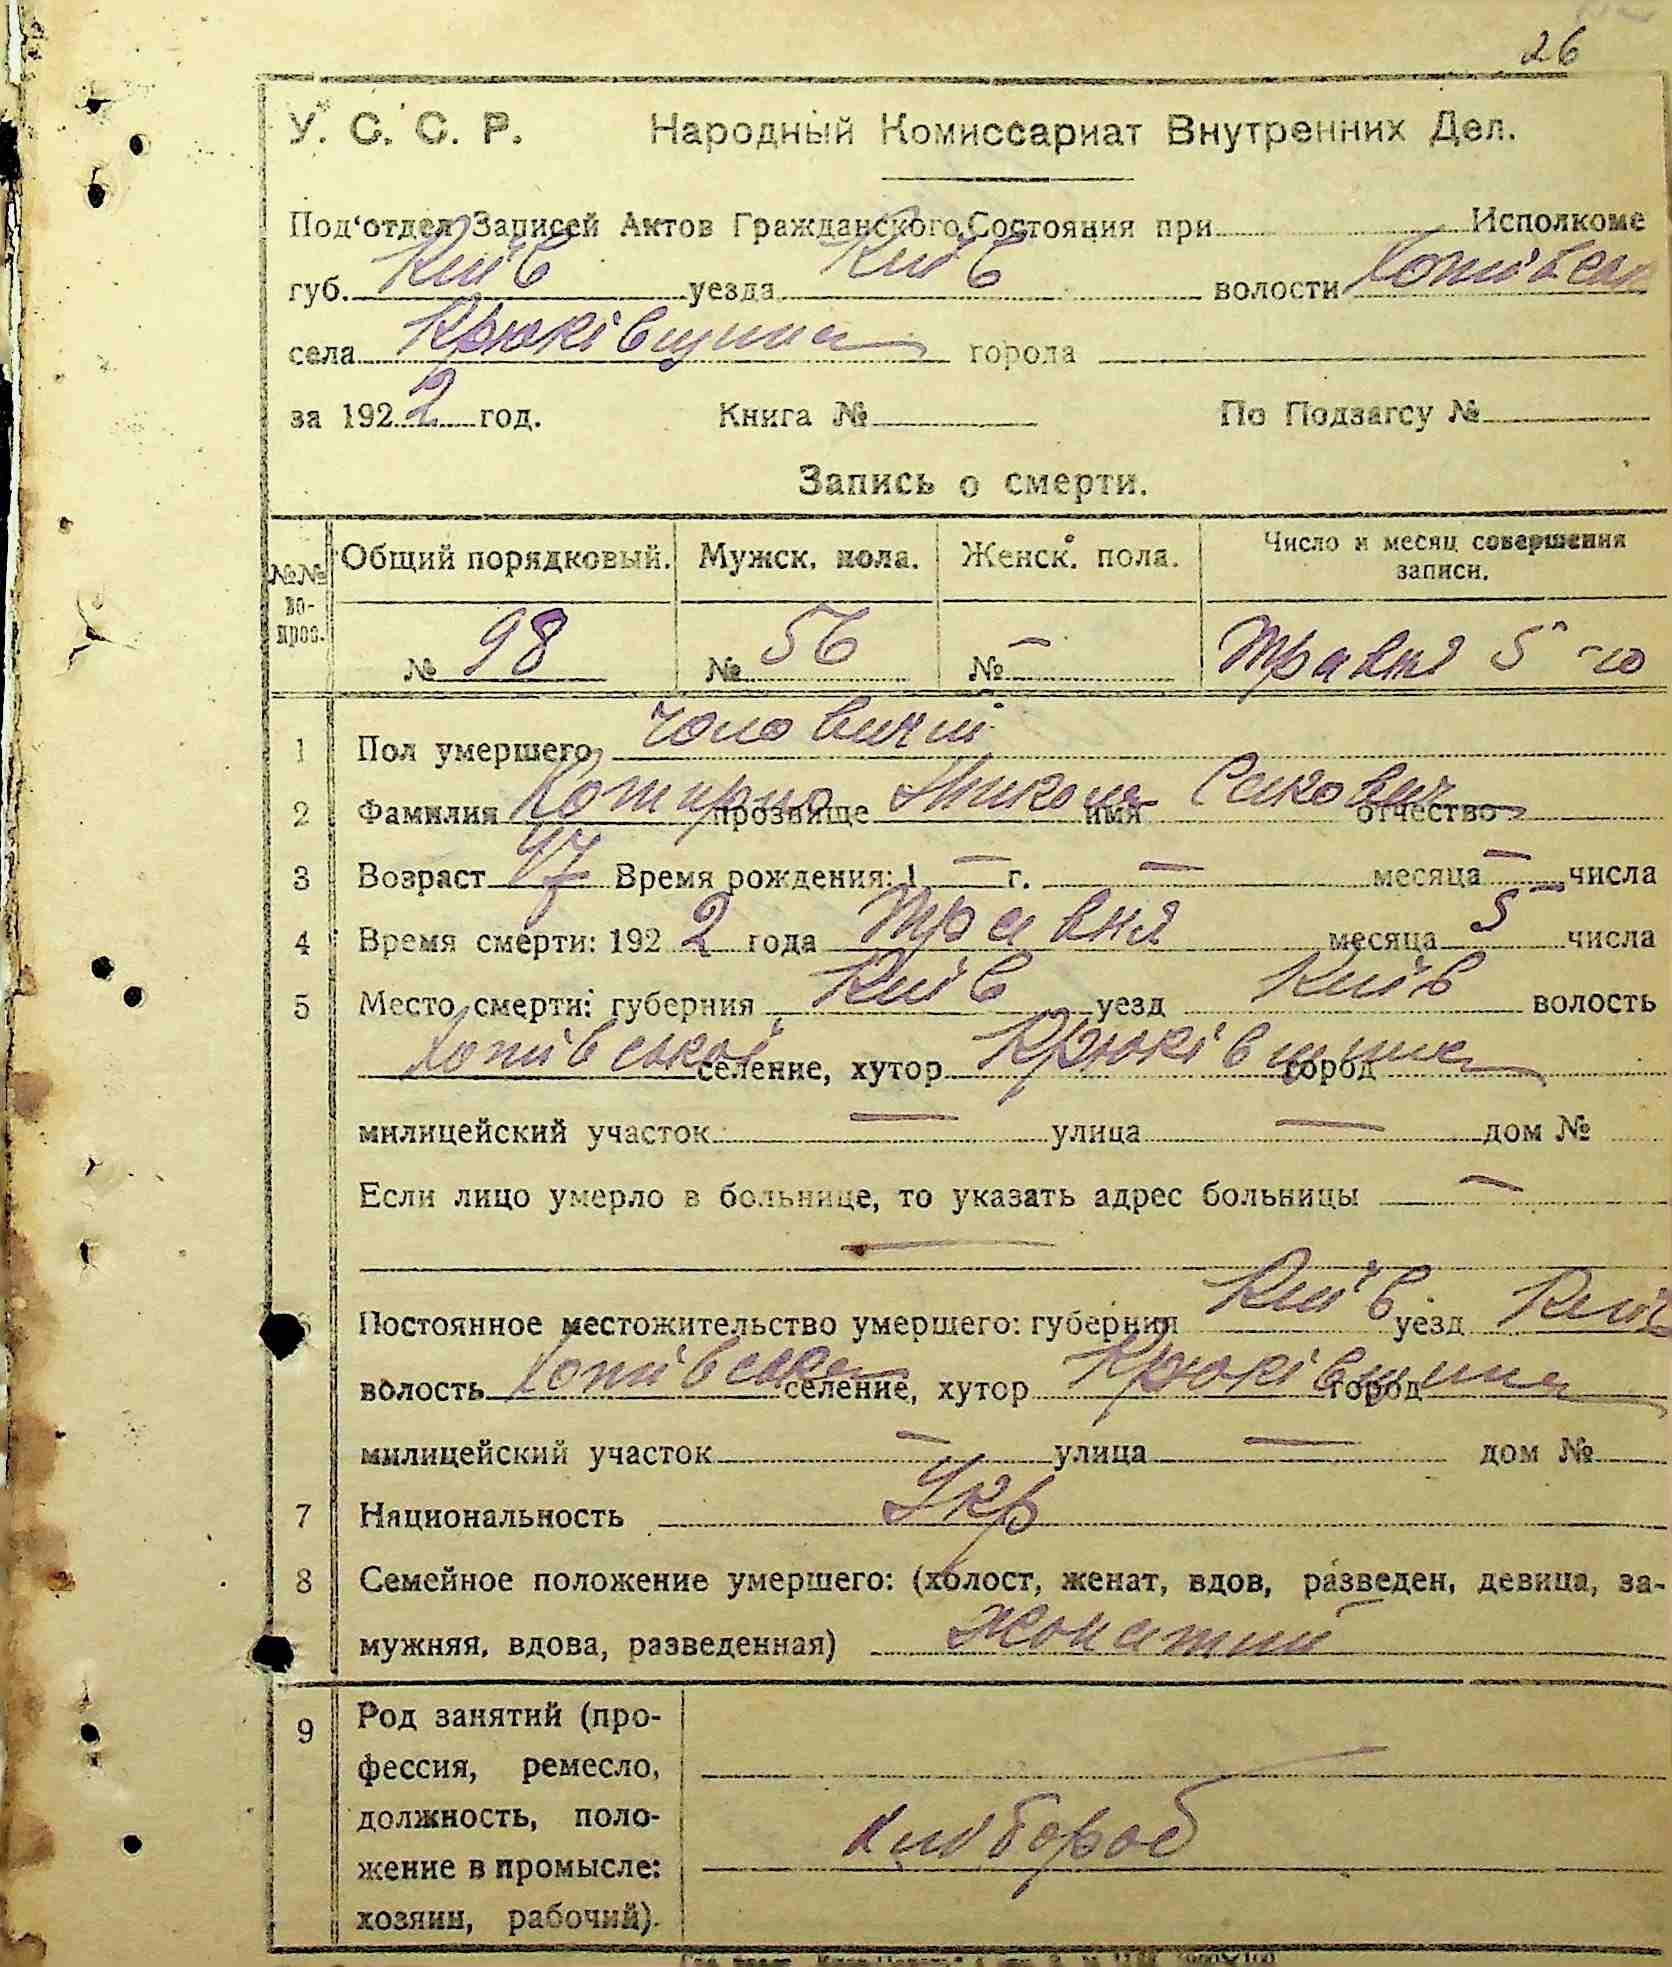 26
У. С. С. Р. Народный Комиссариат Внутренних Дел.
Под‘отдел Записей Актов Гражданского Состояния при Исполкоме
губ. Київ уезда Київ волости Хотівська
села Крюківщина города
за 1922 год. Книга № По Подзагсу №
Запись о смерти.
№№ во-прос. Общий порядковый. Мужск. пола. Женск. пола. Число и месяц совершения записи.
№ 98 № 56 № — Травня 5-го
1 Пол умершего чоловичий
2 Фамилия Котирло прозвище Микола имя Сакович отчество
3 Возраст 47 Время рождения: 1 — г. — месяца — числа
4 Время смерти: 1922 года Травня месяца 5 числа
5 Место смерти: губерния Київ уезд Київ волость
Хотівської селение, хутор Крюківщина город
милицейский участок — улица — дом №
Если лицо умерло в больнице, то указать адрес больницы —
—
6 Постоянное местожительство умершего: губерния Київ уезд Київ
волость Хотівська селение, хутор Крюківщина город
милицейский участок — улица — дом №
7 Национальность Укр
8 Семейное положение умершего: (холост, женат, вдов, разведен, девица, за-
мужняя, вдова, разведенная) жонатий
9 Род занятий (про-
фессия, ремесло,
должность, поло-
жение в промысле:
хозяин, рабочий).
хлібороб